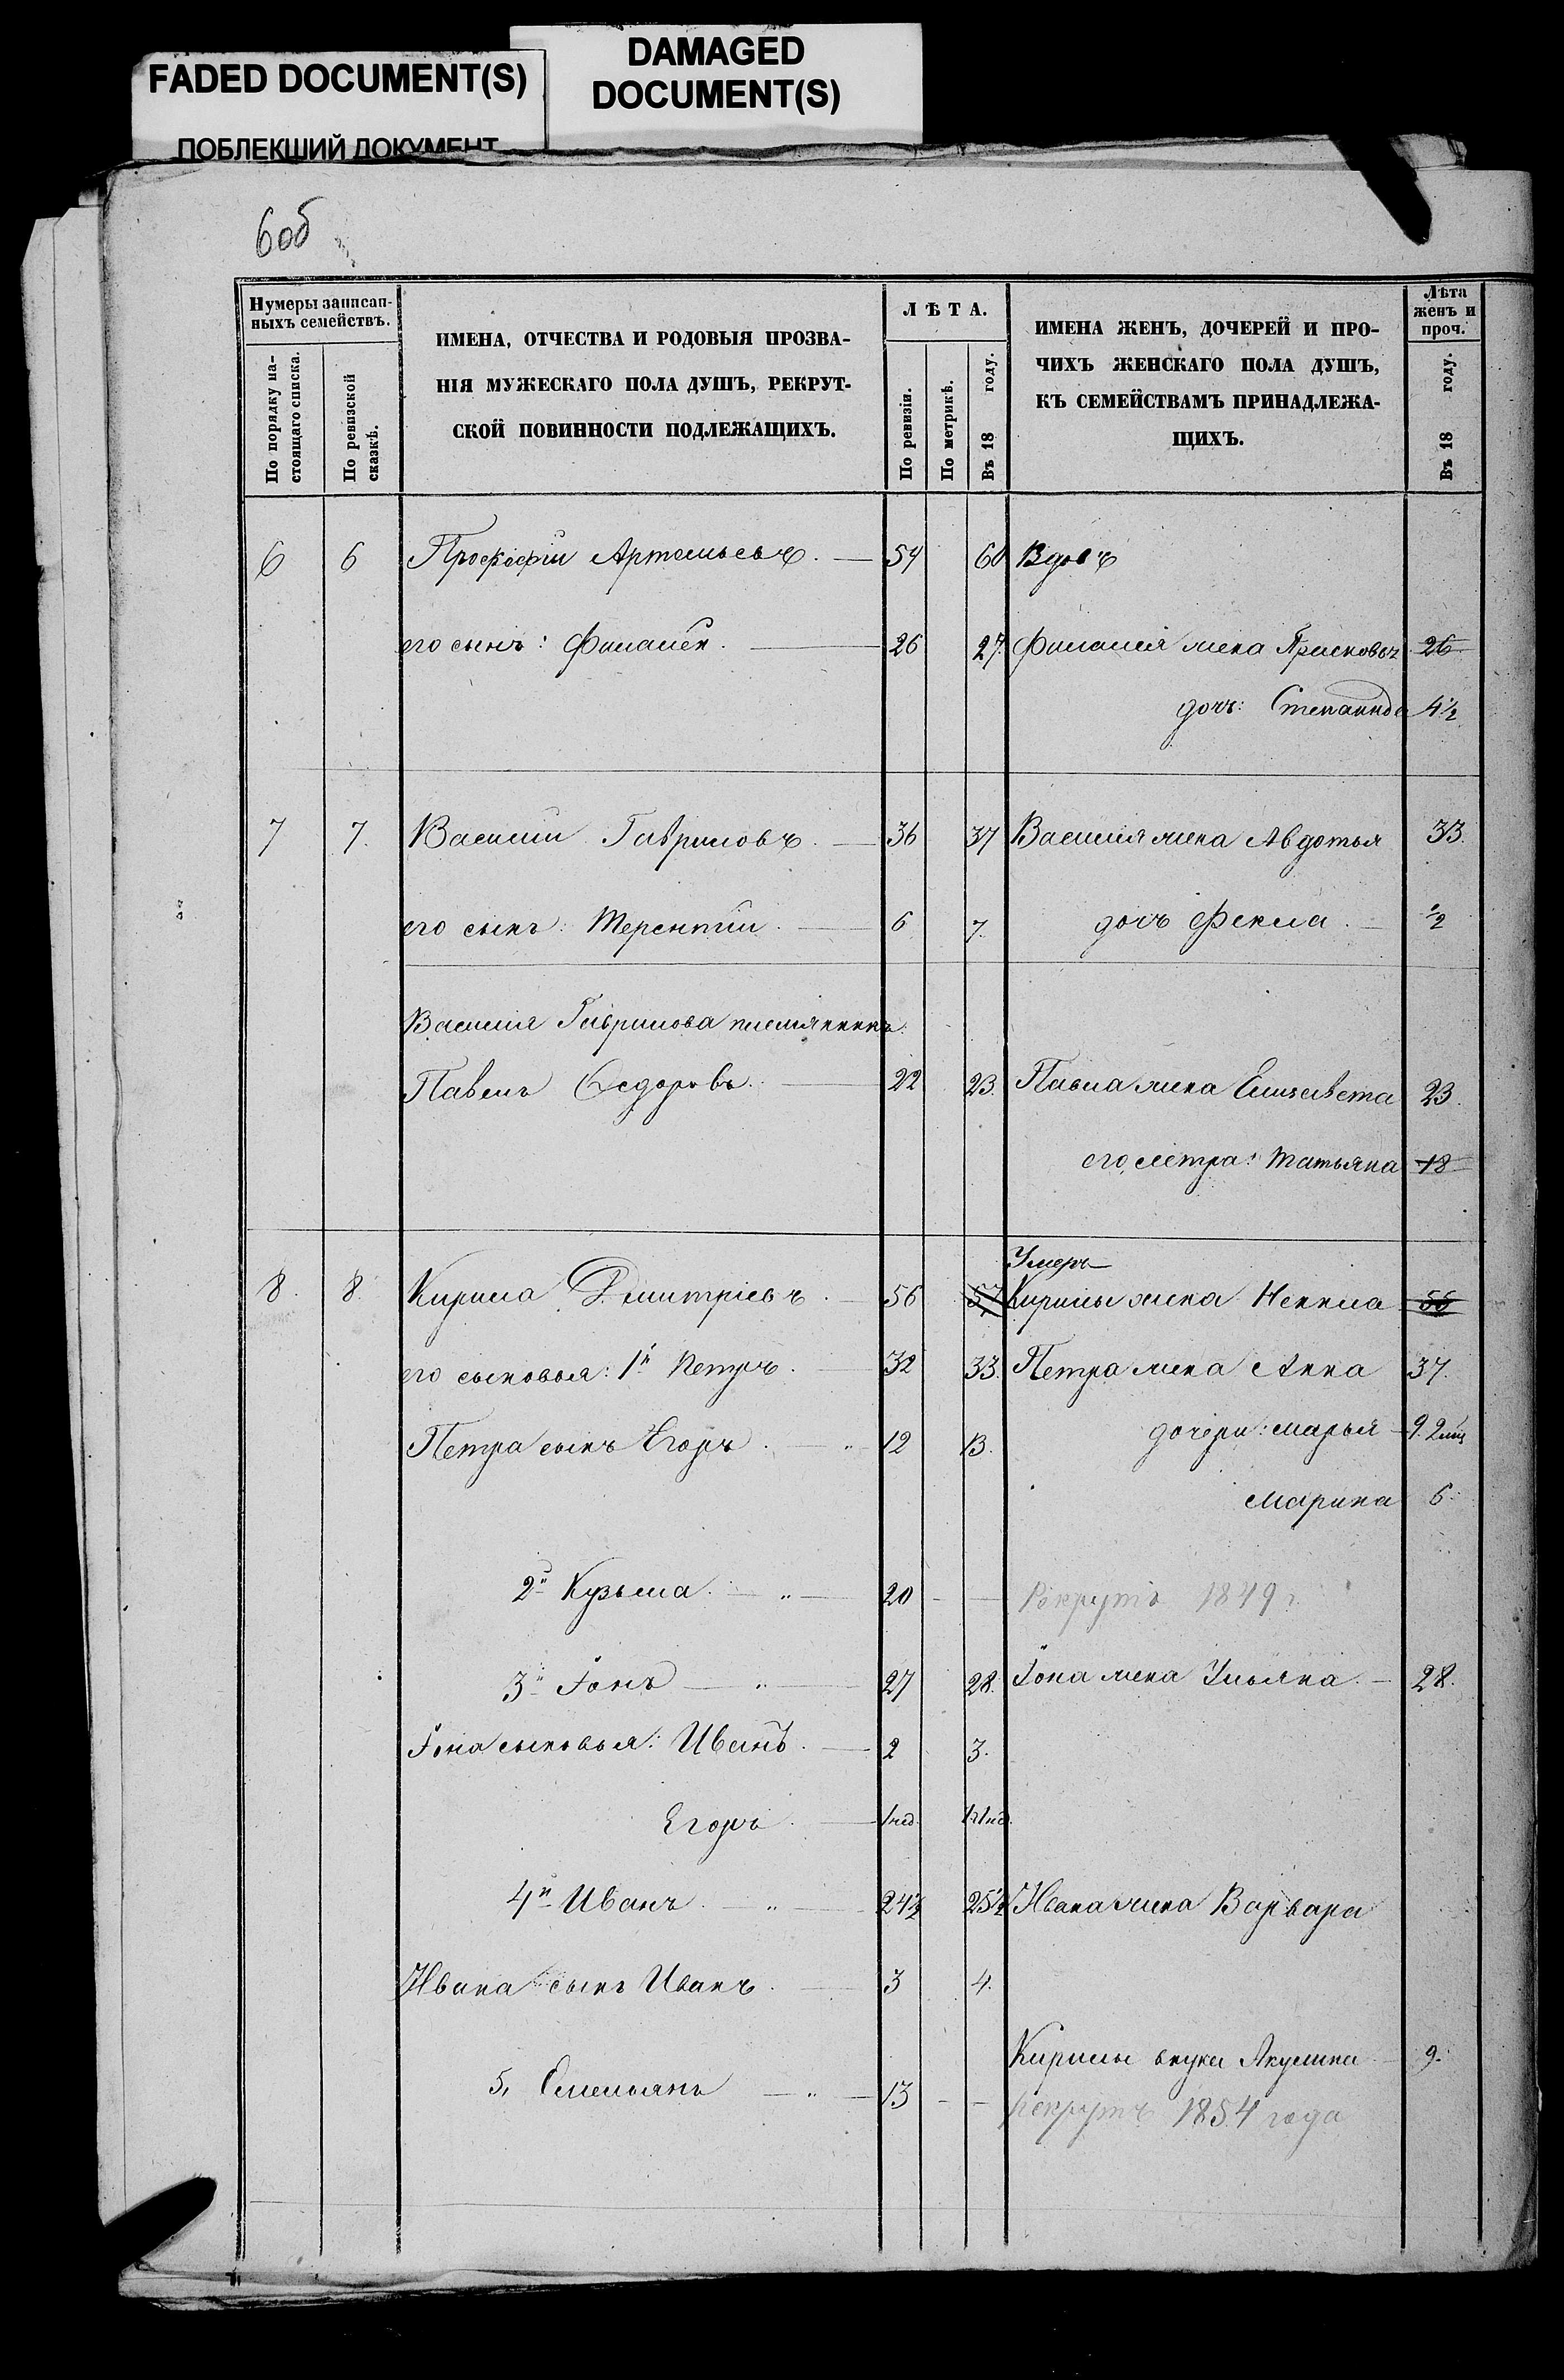 FADED DOCUMENT(S)
ПОБЛЕКШИЙ ДОКУМЕНТ
DAMAGED
DOCUMENT(S)
6 об
Нумеры записан-
ныхъ семействъ.
По порядку на-
стоящаго списка.
По ревизской
сказкѣ.
ИМЕНА, ОТЧЕСТВА И РОДОВЫЯ ПРОЗВА-
НІЯ МУЖЕСКАГО ПОЛА ДУШЪ, РЕКРУТ-
СКОЙ ПОВИННОСТИ ПОДЛЕЖАЩИХЪ.
ЛѢТА.
По ревизіи.
По метрикѣ.
Въ 18 году.
ИМЕНА ЖЕНЪ, ДОЧЕРЕЙ И ПРО-
ЧИХЪ ЖЕНСКАГО ПОЛА ДУШЪ,
КЪ СЕМЕЙСТВАМЪ ПРИНАДЛЕЖА-
ЩИХЪ.
Лѣта
женъ и
проч.
Въ 18 году.
6 6 Прокофій Артемьевъ. 54 60 Вдовъ
его сынъ: 26 27 жена 26
дочь: Степанида 4½
7 7. Василій Гавриловъ. 36 37 Василія жена Авдотья 33.
его сынъ: Терентій. 6 7. дочь Фекла. ½
Василія Гаврилова племянникъ:
Павелъ Ѳедоровъ. 22 23. Павла жена Елизавета 23.
его сестра: Татьяна 18
Умеръ
8. 8. Кирила Дмитріевъ. 56 57 Кирилы жена 55
его сыновья: 1й Петръ. 32 33. Петра жена Анна 37.
Петра сынъ Егоръ. " 12 13. дочери: Марья 9. 2 мц
Марина 6.
2й Кузьма. " 20 - — Рекрутъ 1849 г.
3й Іонъ " 27 28. Іона жена Ульяна. 28.
Іона сыновья: Иванъ. 2 3.
Егоръ. 1 нед. 1 1 нед.
4й Иванъ. " 24½ 25½ Ивана жена Варвара
Ивана сынъ Иванъ. 3 4.
Кирилы внука Акулина 9.
5, Емельянъ " 13 - - рекрутъ 1854 года